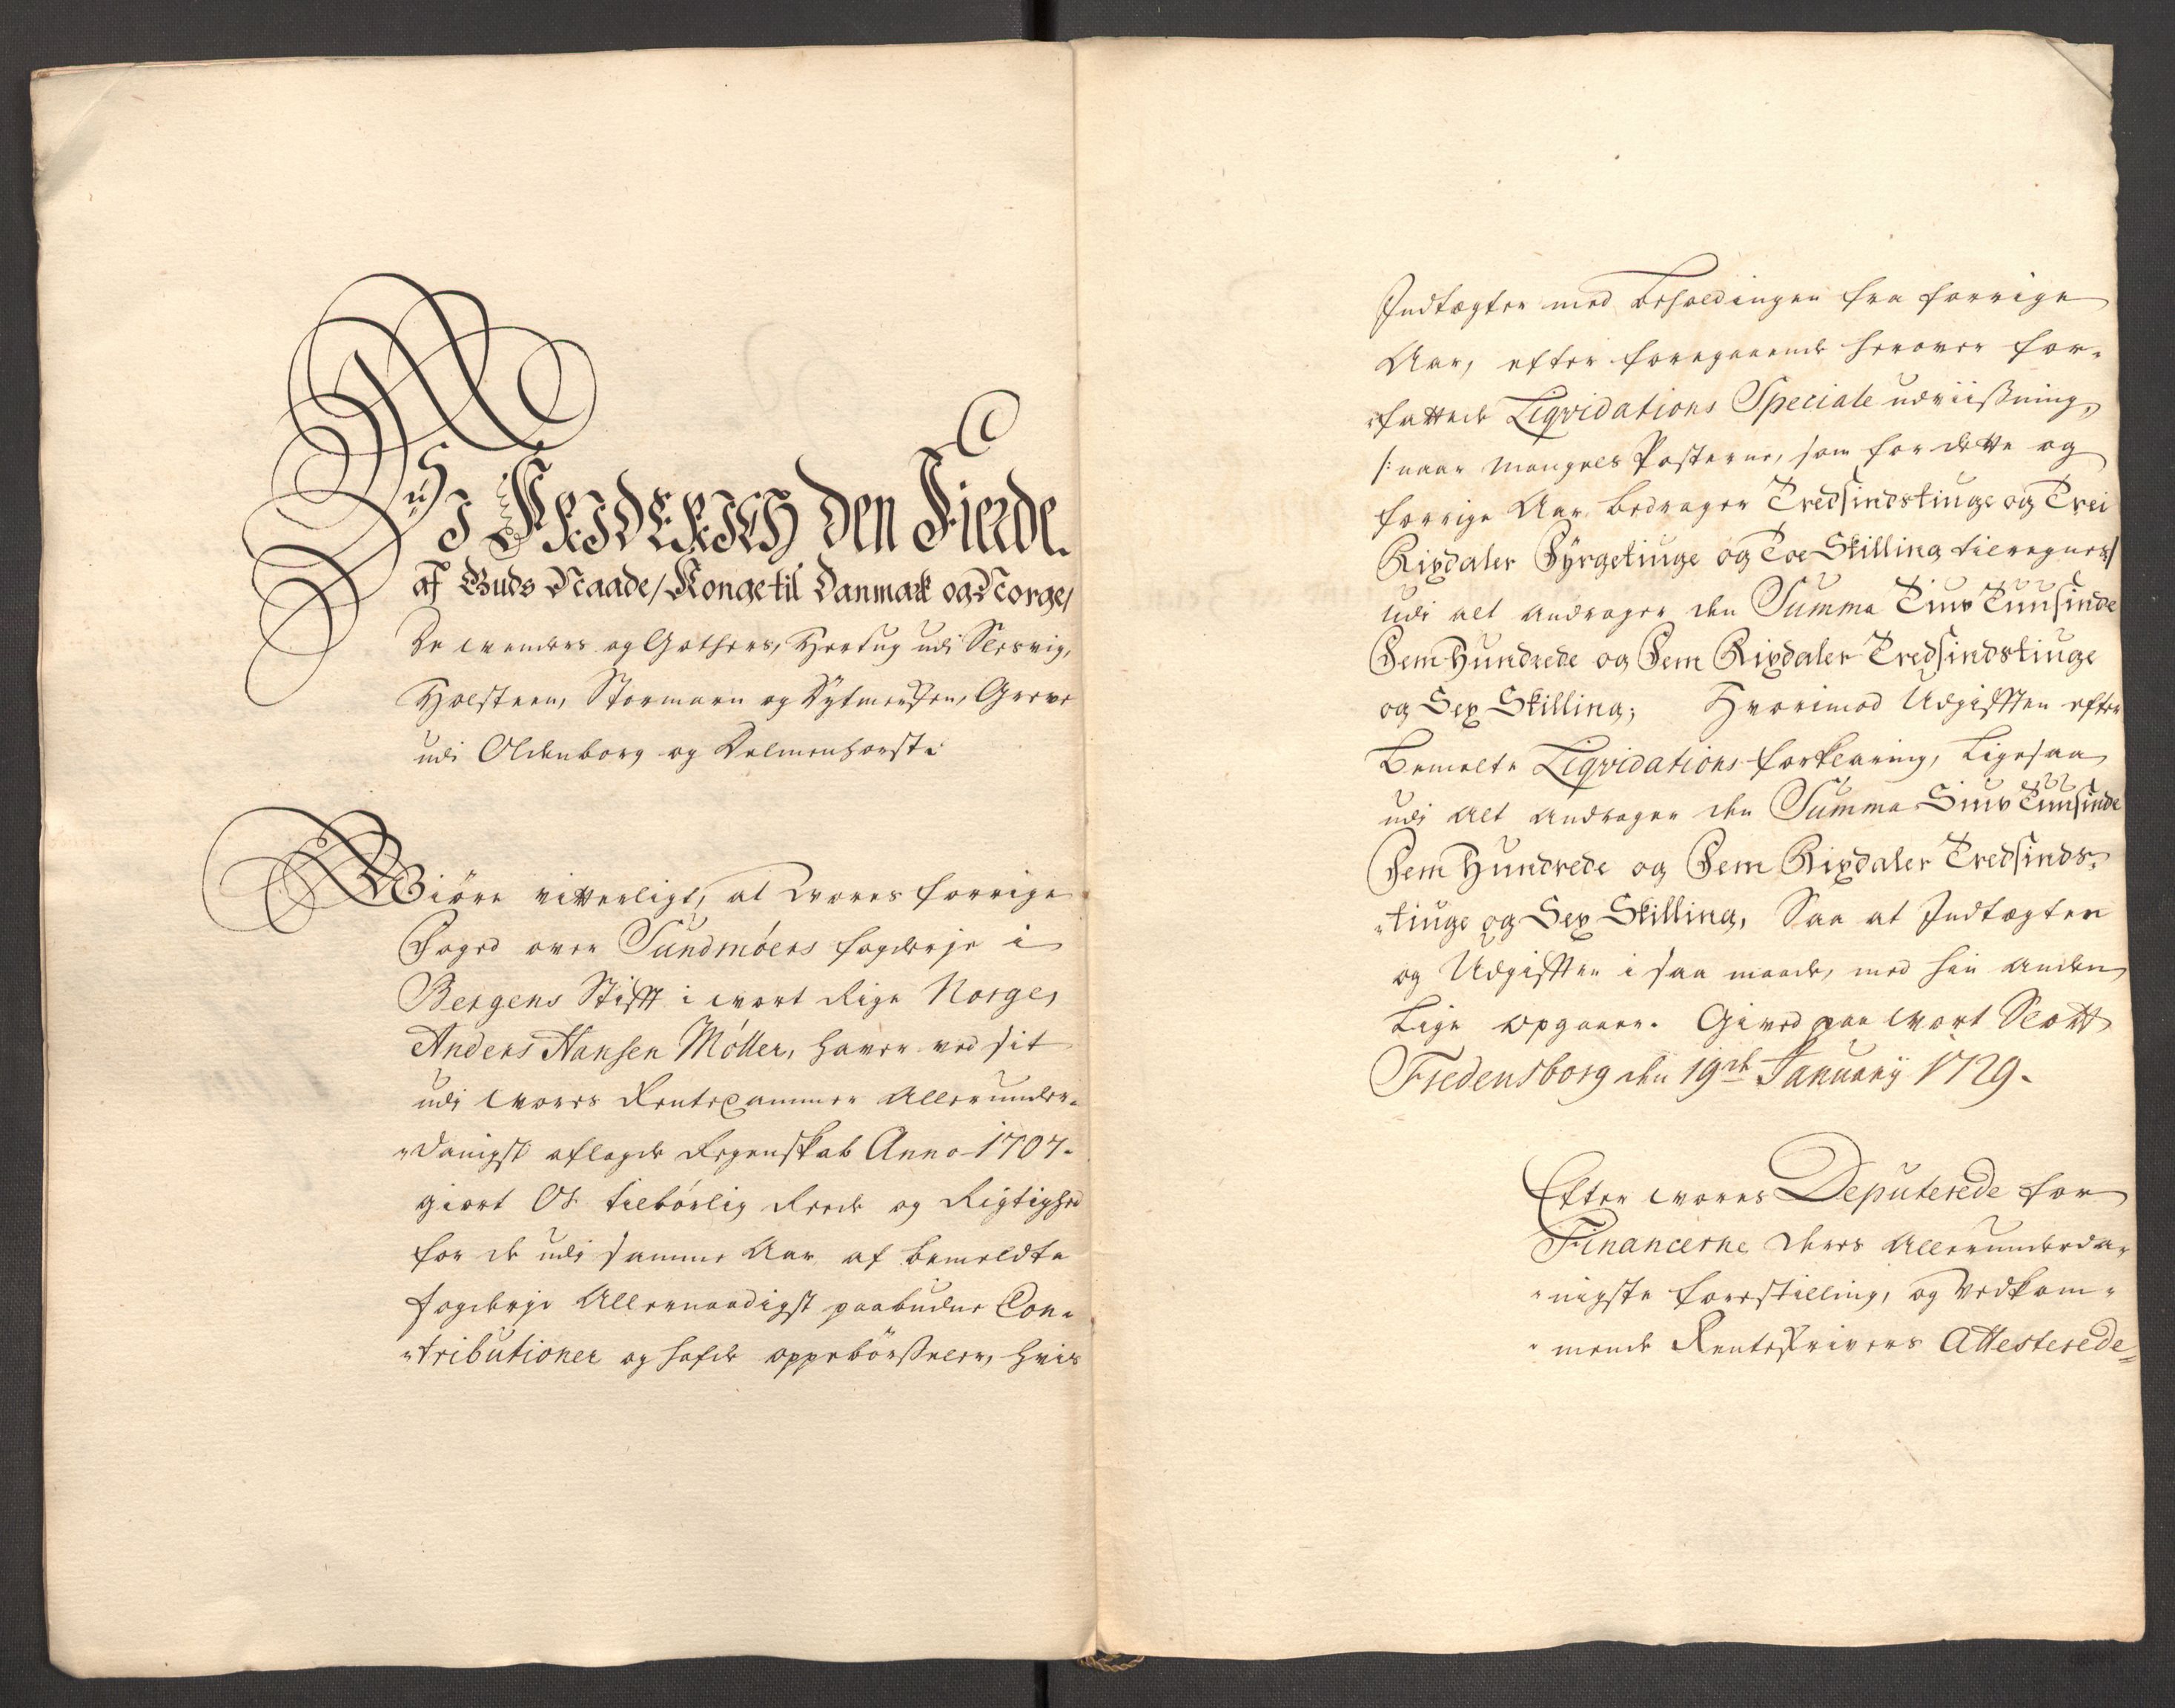 Wii FRIDERICH den Fierde.
af Guds Naade/ Konge til Danmark og Norge/
De Wenders og Gothers, Hertug udi Slesvig,
Holsteen, Stormarn og Dytmersken, Greve
udi Oldenborg og Delmenhorst:
Giöre vitterligt, at Wores forrige
Foged over Sundmöers fogderje i
Bergens Stifft i Wort Rige Norge,
Anders Hansen Möller, haver ved sit
udi Wores Rentecammer Allerunder-
danigst aflagde Regenskab Anno 1707.
giort Os tilbörlig Reede og Rigtighed
for de udi samme Aar af bemeldte
fogderje Allernaadigst paabudne Con-
tributioner og hafde oppebörsseler, hvis
Indtægter med beholdingen fra forrige
Aar, efter foregaaende herover for-
fattede Liqvidations Speciale udviissning,
/: naar Mangels Posterne, som for dette og
forrige Aar bedrager Tredsindstiuge og Trei
Rixdaler Fyrgetiuge og Toe Skilling tilregnes/
udi alt andrager den Summa Siuv Tuusinde
Fem Hundrede og Fem Rixdaler Tredsindstiuge
og Sex Skilling; Hvorimod Udgifften efter
Bemelte Liqvidations forklaring, ligesaa
udi alt andrager den Summa Siuv Tuusinde
Fem Hundrede og Fem Rixdaler Tredsinds-
tiuge og Sex Skilling, Saa at Indtægten
og Udgifften i saa maade, med hin anden
lige opgaaer. Gived paa Wort Slott
Fredensborg den 19de January 1729.
Efter Wores Deputerede for
Financerne deres Allerunderda-
nigste forestilling, og vedkom-
mende Renteskrivers Attesterede